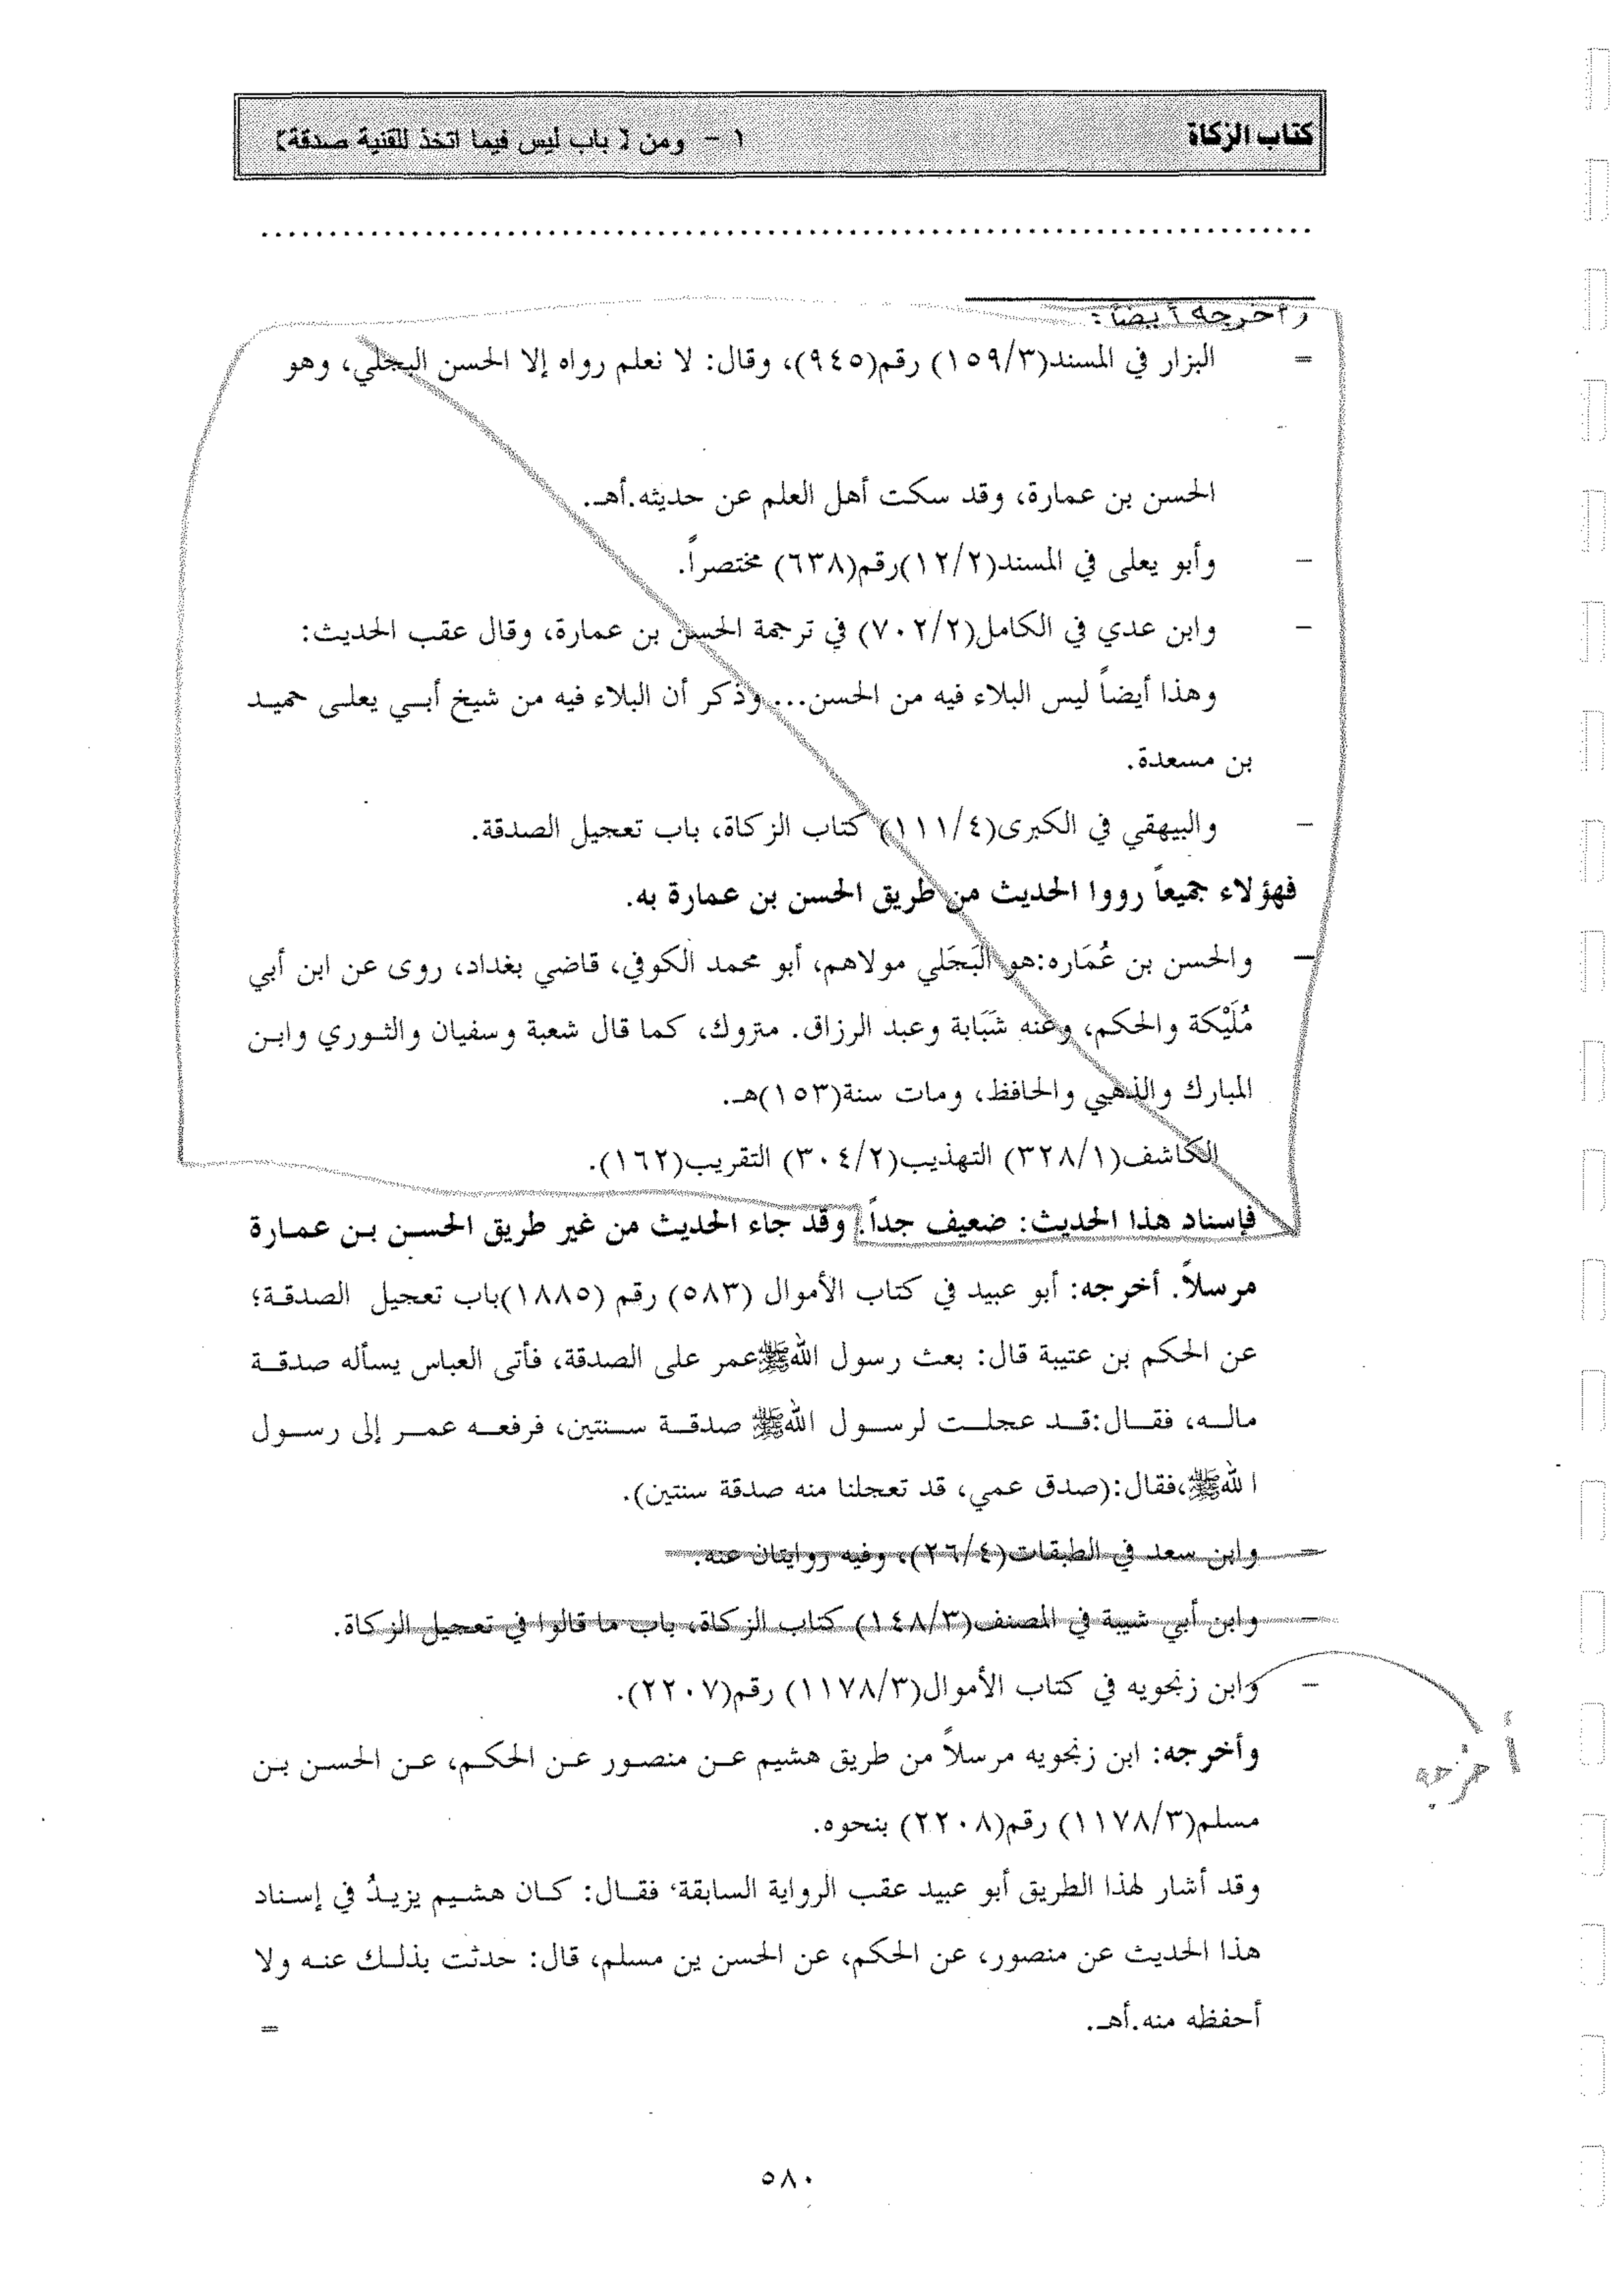 كتاب الزكاة
١ - ومن [ باب ليس فيما اتخذ للقنية صدقة]
وأخرجه أيضاً:
= البزار في المسند(١٥٩/٣) رقم(٩٤٥)، وقال: لا نعلم رواه إلا الحسن البجلي، وهو
الحسن بن عمارة، وقد سكت أهل العلم عن حديثه.أهـ.
- وأبو يعلى في المسند(١٢/٢)رقم(٦٣٨) مختصراً.
- وابن عدي في الكامل(٧٠٢/٢) في ترجمة الحسن بن عمارة، وقال عقب الحديث:
وهذا أيضاً ليس البلاء فيه من الحسن... وذكر أن البلاء فيه من شيخ أبي يعلى حميد
بن مسعدة.
- والبيهقي في الكبرى(١١١/٤) كتاب الزكاة، باب تعجيل الصدقة.
فهؤلاء جميعاً رووا الحديث من طريق الحسن بن عمارة به.
- والحسن بن عُمَاره:هو البَجَلي مولاهم، أبو محمد الكوفي، قاضي بغداد، روى عن ابن أبي
مُلَيْكة والحكم، وعنه شَبَابة وعبد الرزاق. متروك، كما قال شعبة وسفيان والثوري وابن
المبارك والذهبي والحافظ، ومات سنة(١٥٣)هـ.
الكاشف(٣٢٨/١) التهذيب(٣٠٤/٢) التقريب(١٦٢).
فإسناد هذا الحديث: ضعيف جداً. وقد جاء الحديث من غير طريق الحسن بن عمارة
مرسلاً. أخرجه: أبو عبيد في كتاب الأموال (٥٨٣) رقم (١٨٨٥)باب تعجيل الصدقة؛
عن الحكم بن عتيبة قال: بعث رسول اللهﷺعمر على الصدقة، فأتى العباس يسأله صدقة
ماله، فقال:قد عجلت لرسول اللهﷺ صدقة سنتين، فرفعه عمر إلى رسول
اللهﷺ،فقال:(صدق عمي، قد تعجلنا منه صدقة سنتين).
- وابن سعد في الطبقات(٢٦/٤)، وفيه روايتان عنه.
- وابن أبي شيبة في المصنف(١٤٨/٣) كتاب الزكاة، باب ما قالوا في تعجيل الزكاة.
- وابن زنجويه في كتاب الأموال(١١٧٨/٣) رقم(٢٢٠٧).
أخرجه
وأخرجه: ابن زنجويه مرسلاً من طريق هشيم عن منصور عن الحكم، عن الحسن بن
مسلم(١١٧٨/٣) رقم(٢٢٠٨) بنحوه.
وقد أشار لهذا الطريق أبو عبيد عقب الرواية السابقة، فقال: كان هشيم يزيدُ في إسناد
هذا الحديث عن منصور، عن الحكم، عن الحسن ين مسلم، قال: حدثت بذلك عنه ولا
أحفظه منه.أهـ.
=
٥٨٠